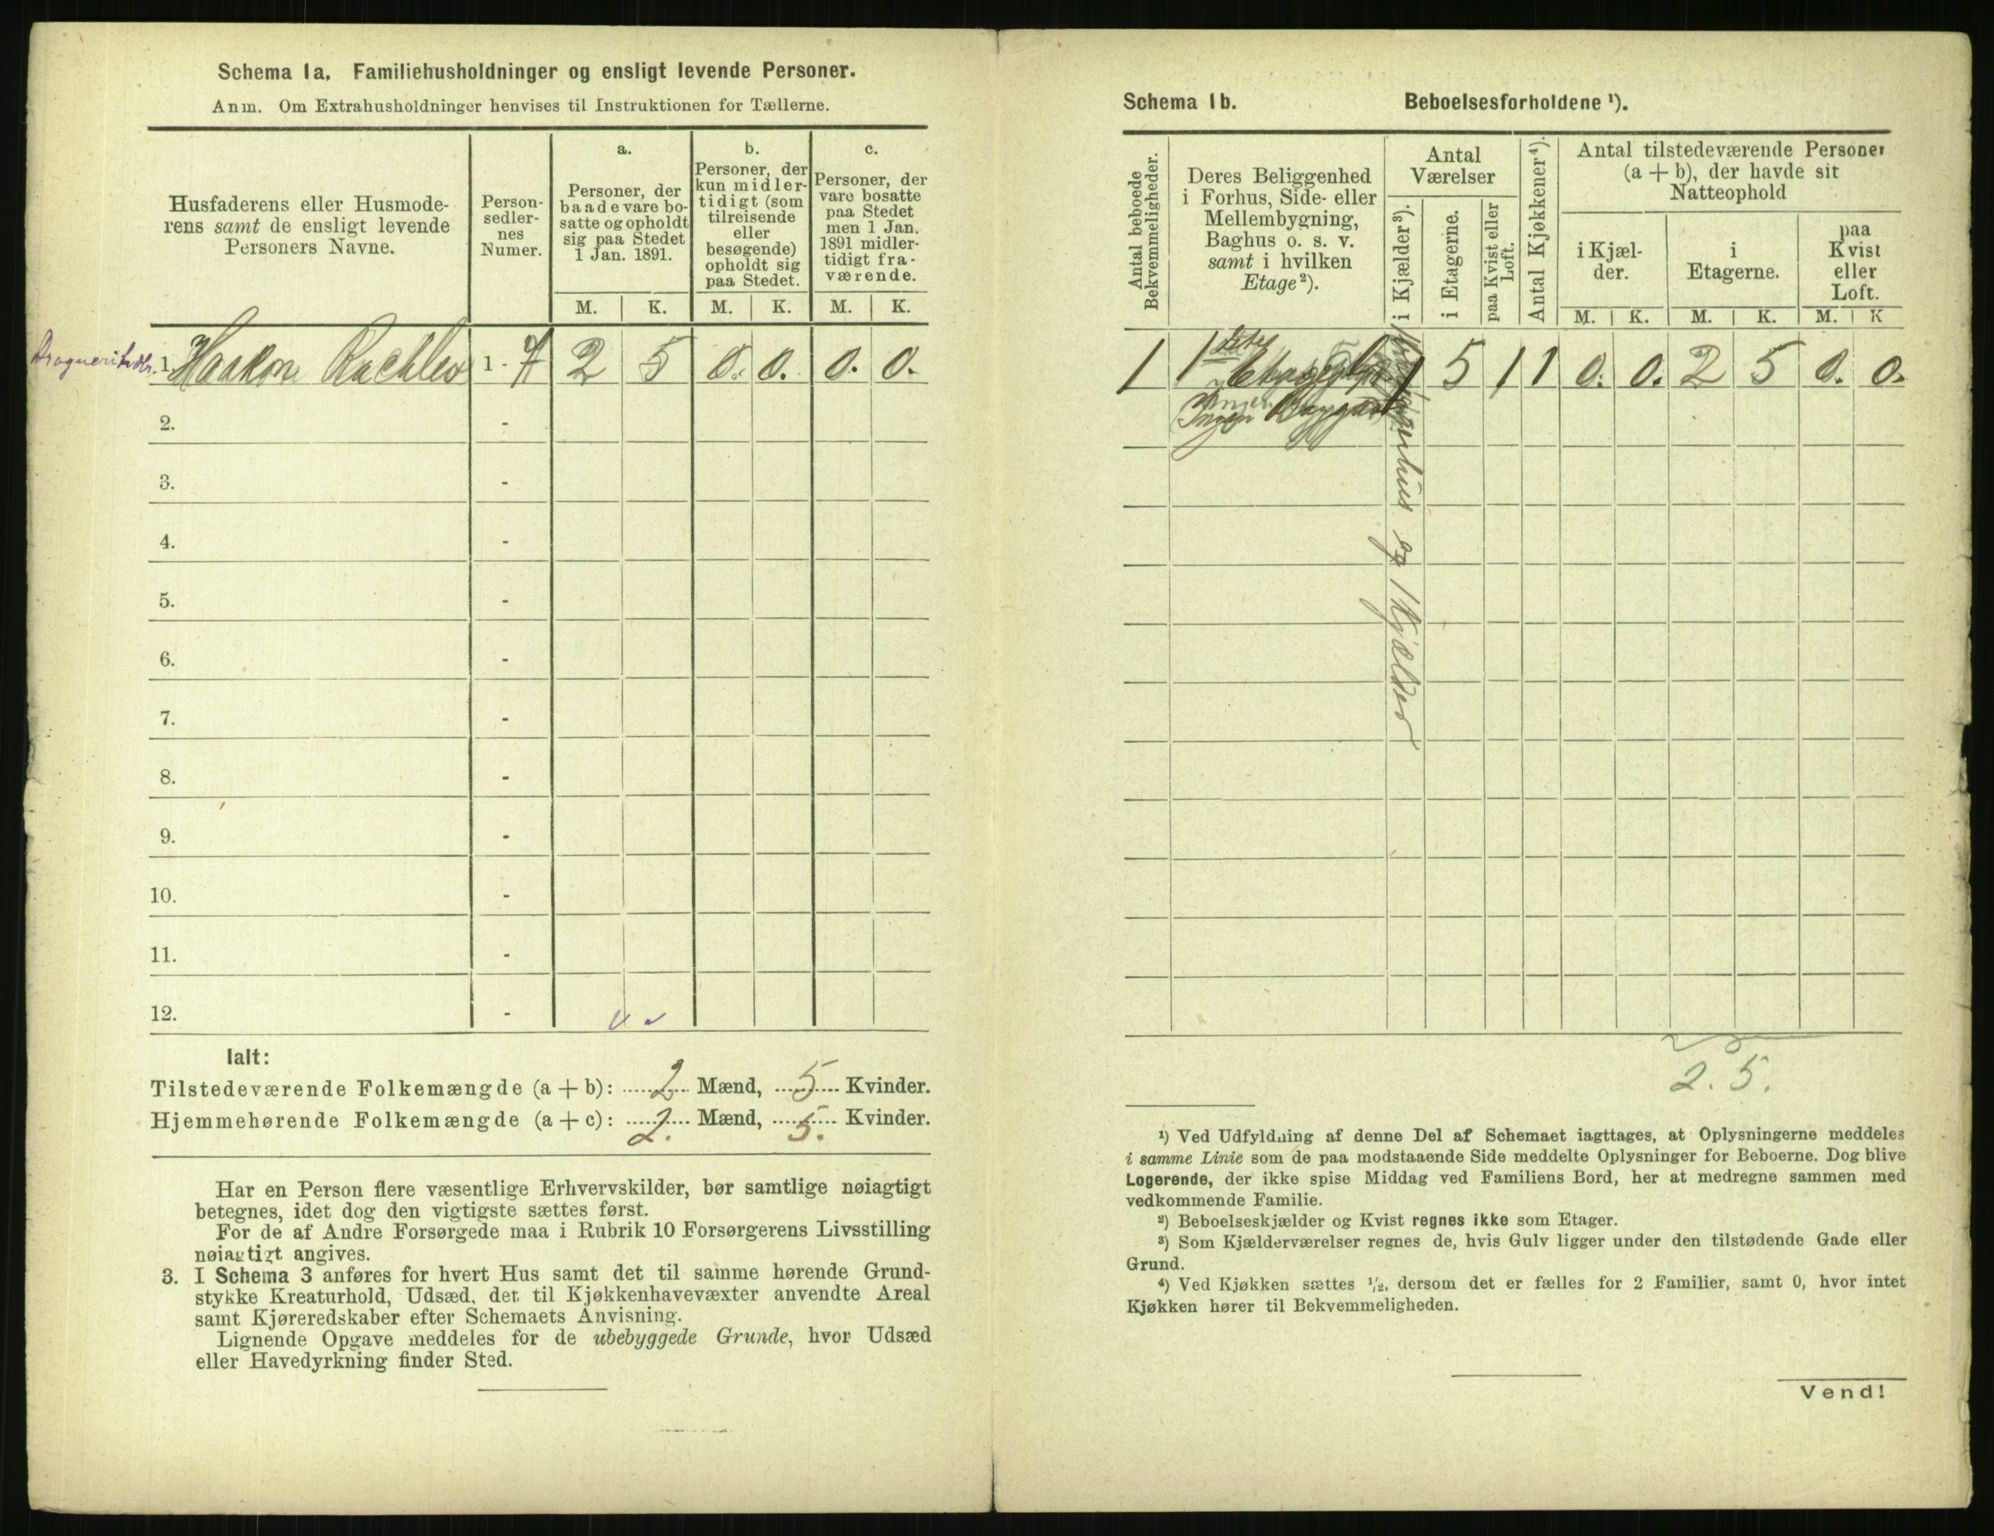 Schema 1a. Familiehusholdninger og ensligt levende Personer.
Anm. Om Extrahusholdninger henvises til Instruktionen for Tællerne.
Husfaderens eller Husmode-
rens samt de ensligt levende
Personers Navne.
Person-
sedler-
nes
Numer.
a.
Personer, der
baade vare bo-
satte og opholdt
sig paa Stedet
1 Jan. 1891.
b.
Personer, der
kun midler-
tidigt (som
tilreisende
eller
besøgende)
opholdt sig
paa Stedet.
c.
Personer, der
vare bosatte
paa Stedet
men 1 Jan.
1891 midler-
tidigt fra-
værende.
M. K. M. K. M. K.
1. Haakon 1 - 7 2 5 0. 0. 0. 0.
2. -
3. -
4. -
5. -
6. -
7. -
8. -
9. -
10. -
11. -
12. -
Ialt:
Tilstedeværende Folkemængde (a + b): 2 Mænd, 5 Kvinder.
Hjemmehørende Folkemængde (a + c): 2. Mænd, 5. Kvinder.
Har en Person flere væsentlige Erhvervskilder, bør samtlige nøiagtigt
betegnes, idet dog den vigtigste sættes først.
For de af Andre Forsørgede maa i Rubrik 10 Forsørgerens Livsstilling
nøiagtigt angives.
3. I Schema 3 anføres for hvert Hus samt det til samme hørende Grund-
stykke Kreaturhold, Udsæd, det til Kjøkkenhavevæxter anvendte Areal
samt Kjøreredskaber efter Schemaets Anvisning.
Lignende Opgave meddeles for de ubebyggede Grunde, hvor Udsæd
eller Havedyrkning finder Sted.
Schema 1b. Beboelsesforholdene ¹).
Antal beboede
Bekvemmeligheder.
Deres Beliggenhed
i Forhus, Side- eller
Mellembygning,
Baghus o. s. v.
samt i hvilken
Etage²).
Antal
Værelser
i Kjælder³).
i Etagerne.
paa Kvist eller
Loft.
Antal Kjøkkener⁴).
Antal tilstedeværende Personer
(a + b), der havde sit
Natteophold
i Kjæl-
der.
i
Etagerne.
paa
Kvist
eller
Loft.
M. K. M. K. M. K
1 1 5 1 1 0. 0. 2 5 0. 0.
og 1 Kjælder
2. 5.
¹) Ved Udfyldning af denne Del af Schemaet iagttages, at Oplysningerne meddeles
i samme Linie som de paa modstaaende Side meddelte Oplysninger for Beboerne. Dog blive
Logerende, der ikke spise Middag ved Familiens Bord, her at medregne sammen med
vedkommende Familie.
²) Beboelseskjælder og Kvist regnes ikke som Etager.
³) Som Kjælderværelser regnes de, hvis Gulv ligger under den tilstødende Gade eller
Grund.
⁴) Ved Kjøkken sættes ¹/₂, dersom det er fælles for 2 Familier, samt 0, hvor intet
Kjøkken hører til Bekvemmeligheden.
Vend!